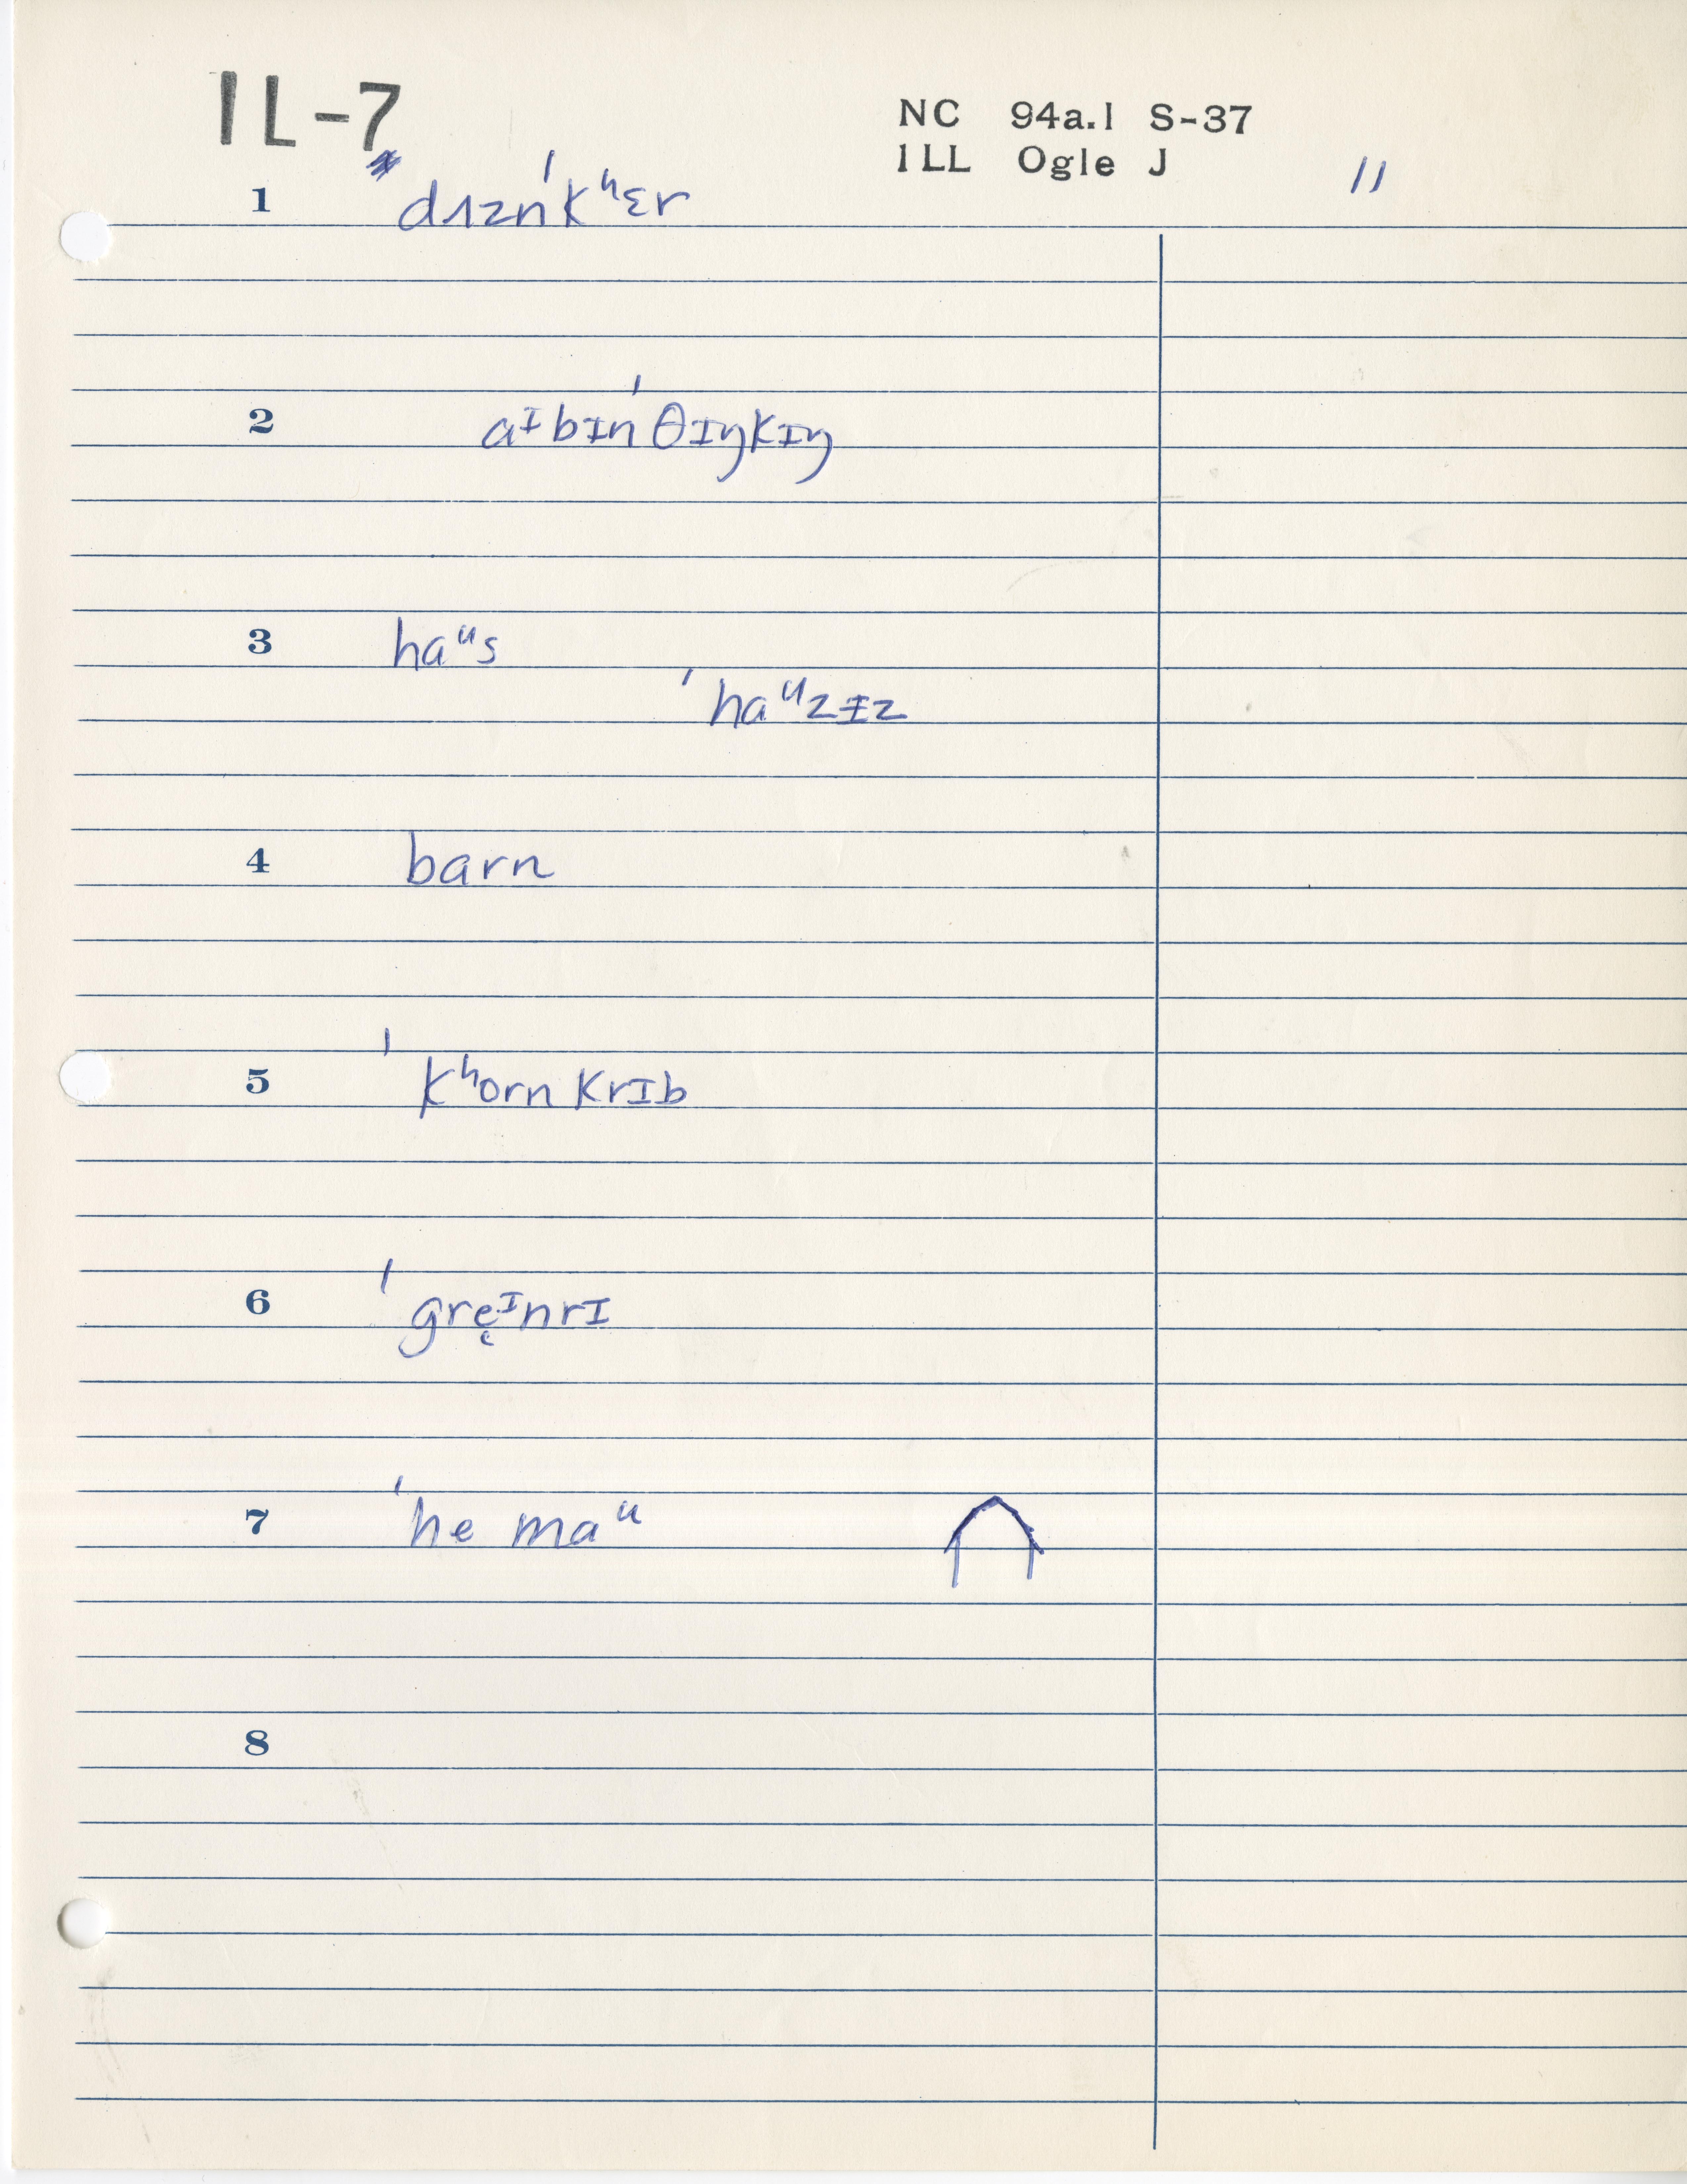 IL-7
NC 94a.1 S-37
ILL Ogle J
11
1 dʌznˈkʰɛr
2 aᶦbɪnˈθɪŋkɪŋ
3 haᵘs
ˈhaᵘzɪz
4 barn
5 ˈkʰorn krɪb
6 ˈgre̜ᶦnrɪ
7 ˈhe maᵘ
8